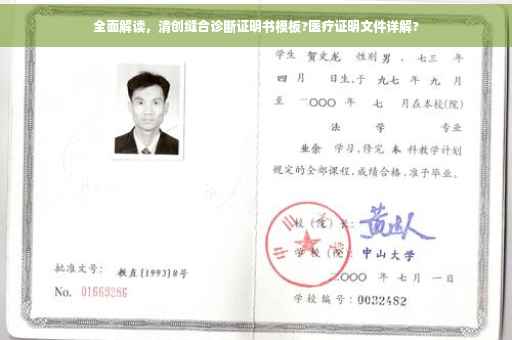 全面解读，清创缝合诊断证明书模板?医疗证明文件详解?
学生 贺文龙 性别 男 、七三 年
四 月 日生,于 九七 年 九 月
至 二〇〇〇 年 七 月在本校(院)
法 学 专业
业余 学习,修完 本 科教学计划
规定的全部课程,成绩合格,准予毕业。
校 (院) 长:
学 校 (院): 中山大学
二〇〇〇 年 七 月 一 日
批准文号: 教直 [1993] 8号
No. 01669286
学校编号: 0032482